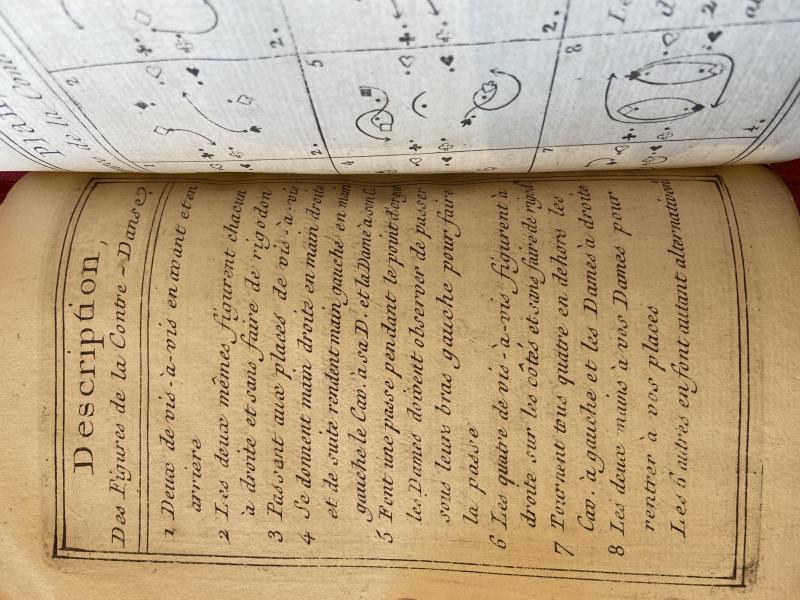 Description,
Des Figures de la Contre-Danse
1 Deux de vis-à-vis en avant et en
arriere
2 Les deux mêmes figurent chacun
à droite et sans faire de rigodon
3 Passent aux places de vis-à-vis
4 Se donnent main droite en main droite
et de suite rendent main gauche en main
gauche le Cav. à sa D. et la Dame à son C.
5 Font une passe pendant le point d'orgue
les Dames doivent observer de passer
sous leurs bras gauche pour faire
la passe
6 Les quatre de vis-à-vis figurent à
droite sur les côtés et sans faire de rigod.
7 Tournent tous quatre en dehors les
Cav. à gauche et les Dames à droite
8 Les deux mains à vos Dames pour
rentrer à vos places
Les 6 autres en font autant alternativem.
de la Cont
1
2
2.
2.
4
5
2.
7
8
4.